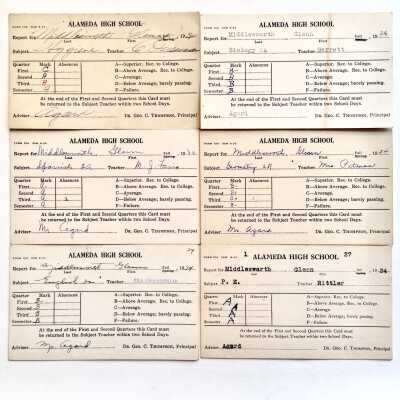 ALAMEDA HIGH SCHOOL
Report for Middlesworth
Last First
Subject Hygiene Teacher
Quarter Mark Absences A—Superior. Rec. to College.
First C B—Above Average. Rec. to College.
Second C—Average.
Third D—Below Average; barely passing.
Semester F—Failure.
At the end of the First and Second Quarters this Card must
be returned to the Subject Teacher within two School Days.
Adviser Agard Dr. Geo. C. Thompson, Principal
ALAMEDA HIGH SCHOOL
Report for Middlesworth Glenn 34
Last First
Subject Biology Teacher Garrett
Quarter Mark Absences A—Superior. Rec. to College.
First B B—Above Average. Rec. to College.
Second C—Average.
Third D—Below Average; barely passing.
Semester F—Failure.
At the end of the First and Second Quarters this Card must
be returned to the Subject Teacher within two School Days.
Adviser Agard Dr. Geo. C. Thompson, Principal
ALAMEDA HIGH SCHOOL
Report for Middlesworth Glenn
Last First
Subject Spanish Teacher
Quarter Mark Absences A—Superior. Rec. to College.
First B—Above Average. Rec. to College.
Second C—Average.
Third 2 D—Below Average; barely passing.
Semester F—Failure.
At the end of the First and Second Quarters this Card must
be returned to the Subject Teacher within two School Days.
Adviser Mr. Agard Dr. Geo. C. Thompson, Principal
ALAMEDA HIGH SCHOOL
Report for Middlesworth Glenn
Last First
Subject Teacher Mrs.
Quarter Mark Absences A—Superior. Rec. to College.
First B—Above Average. Rec. to College.
Second C—Average.
Third D—Below Average; barely passing.
Semester F—Failure.
At the end of the First and Second Quarters this Card must
be returned to the Subject Teacher within two School Days.
Adviser Mr. Agard Dr. Geo. C. Thompson, Principal
ALAMEDA HIGH SCHOOL
Report for Middlesworth Glenn 34
Last First
Subject English Teacher
Quarter Mark Absences A—Superior. Rec. to College.
First B—Above Average. Rec. to College.
Second C—Average.
Third D—Below Average; barely passing.
Semester B F—Failure.
At the end of the First and Second Quarters this Card must
be returned to the Subject Teacher within two School Days.
Adviser Mr. Agard Dr. Geo. C. Thompson, Principal
1 ALAMEDA HIGH SCHOOL 27
Report for Middlesworth Glenn 34
Last First
Subject P. E. Teacher Rittler
Quarter Mark Absences A—Superior. Rec. to College.
First A B—Above Average. Rec. to College.
Second A C—Average.
Third A D—Below Average; barely passing.
Semester A F—Failure.
At the end of the First and Second Quarters this Card must
be returned to the Subject Teacher within two School Days.
Adviser Agard Dr. Geo. C. Thompson, Principal